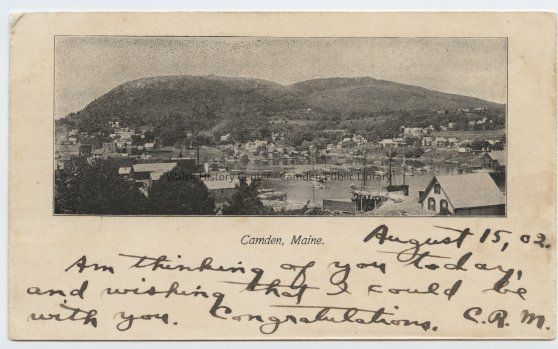 Walsh History Center @ Camden Public Library
Camden, Maine.
August 15, 02.
Am thinking of you today,
and wishing that I could be
with you. Congratulations. C.R.M.